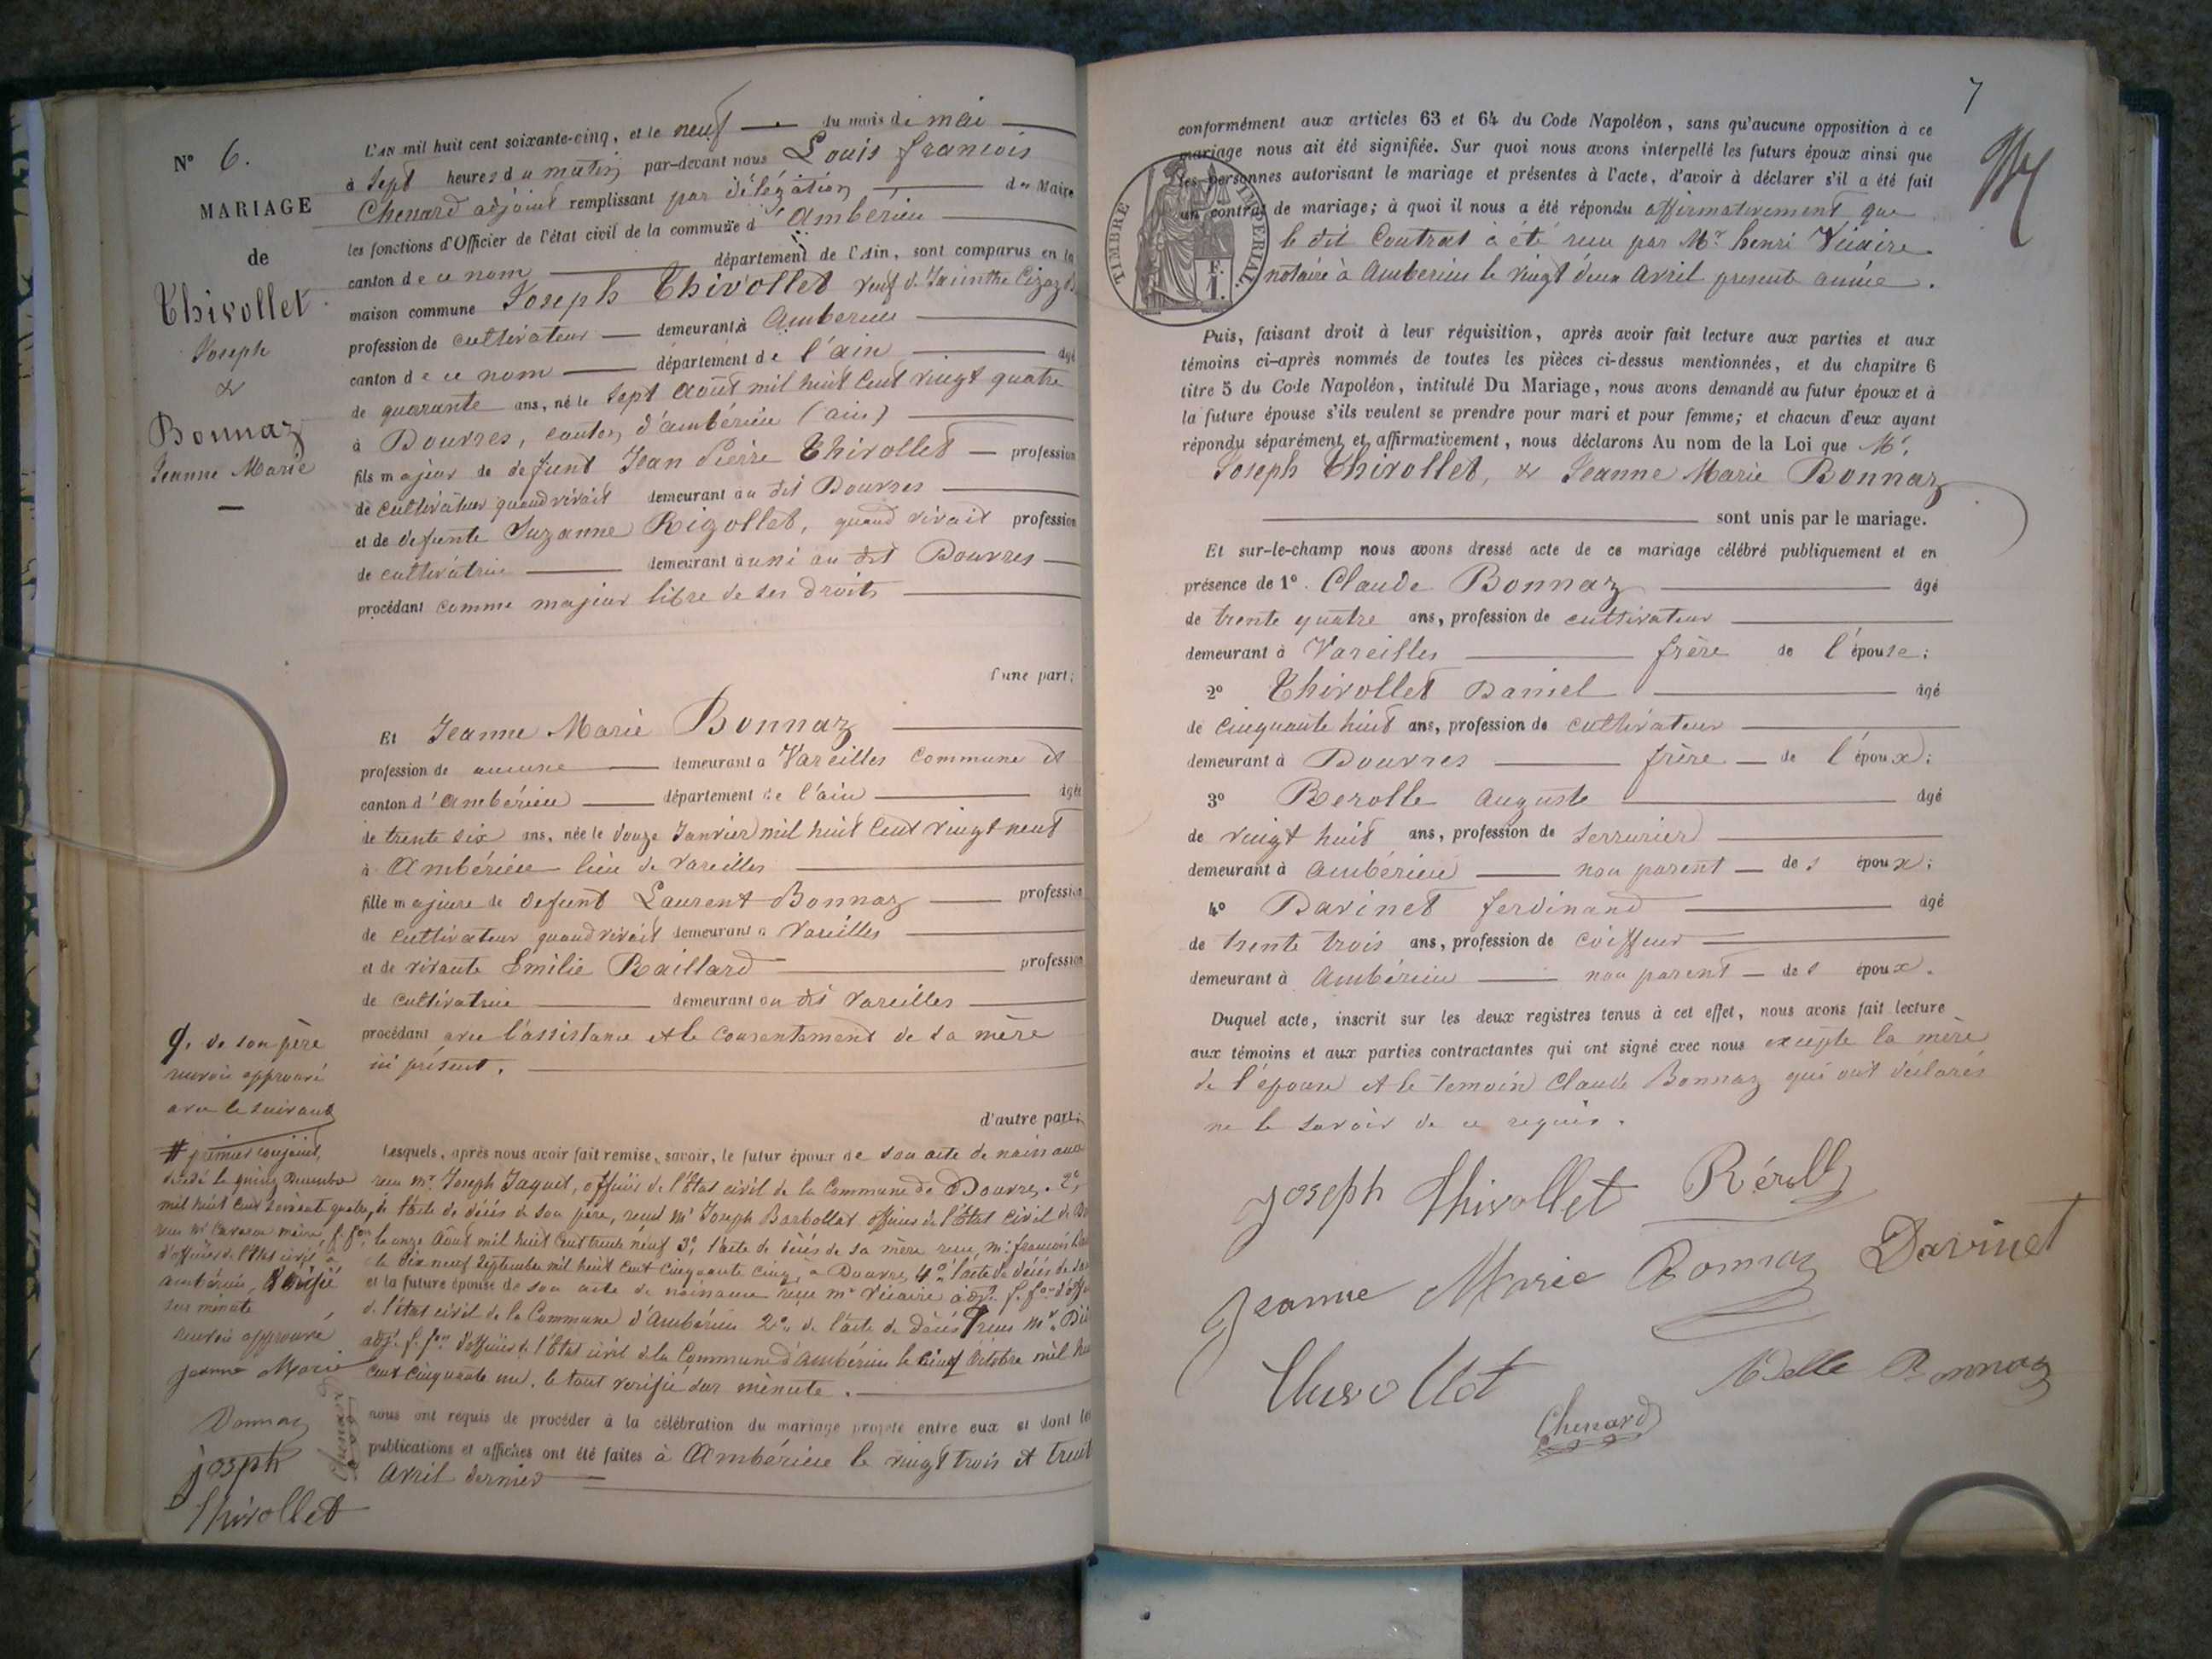 N° 6.
MARIAGE
de
Thivollet
Joseph
&
Bonnaz
Jeanne Marie
L'AN mil huit cent soixante-cinq, et le neuf du mois de mai
à sept heures du matin par-devant nous Louis françois
Chenard adjoint remplissant par délégation du Maire
les fonctions d'Officier de l'état civil de la commune d'Ambérieu
canton de ce nom département de l'Ain, sont comparus en la
maison commune Joseph Thivollet veuf de Jacinthe
profession de cultivateur demeurant à Amberieu
canton de ce nom département de l'ain âgé
de quarante ans, né le sept août mil huit cent vingt quatre
à Douvres, canton d'ambérieu (ain)
fils majeur de defunt Jean Pierre Thivollet profession
de cultivateur quand vivait demeurant au dit Douvres
et de defunte Suzanne Rigollet, quand vivait profession
de cultivatrice demeurant aussi au dit Douvres
procédant comme majeur libre de ses droits
d'une part;
Et Jeanne Marie Bonnaz
profession de aucune demeurant à Vareilles commune et
canton d'Ambérieu département de l'ain âgée
de trente six ans, née le douze Janvier mil huit cent vingt neuf
à Ambérieu lieu de Vareilles
fille majeure de defunt Laurent Bonnaz profession
de cultivateur quand vivait demeurant à Vareilles
et de vivante Emilie Baillard profession
de cultivatrice demeurant au dit Vareilles
procédant avec l'assistance et le consentement de sa mère
ici présent.
d'autre part;
lesquels, après nous avoir fait remise, savoir, le futur époux de son acte de naissance
reçu Mr. Joseph Jaquet, officier de l'Etat civil de la Commune de Douvres. 2°
à l'acte de décès de son père, reçu Mr Joseph Barbollat officier de l'Etat civil de
le onze Août mil huit cent trente neuf 3°, l'acte de décès de sa mère reçu, Mr. francois
le dix neuf Septembre mil huit cent cinquante cinq, à Douvres 4° l'acte de décès de sa
et la future épouse de son acte de naissance reçu Mr Vicaire adjt. f. fon
de l'état civil de la Commune d'Ambérieu 2° de l'acte de décès reçu Mr.
adjt. f. fon d'officier de l'Etat civil de la Commune d'Ambérieu le neuf Octobre mil
cent cinquante un. le tout vérifié sur minute.
nous ont requis de procéder à la célébration du mariage projeté entre eux et dont les
publications et affiches ont été faites à Ambérieu le vingt trois et trente
Avril dernier
q. de son père
renvoi approuvé
avec le suivant
# premier conjoint,
décédé le quinze Decembre
mil huit cent soixante quatre,
reçu Mr maire, f. fon
d'officier de l'Etat civil à
ambérieu, Vérifié
sur minute
renvoi approuvé
Jeanne Marie
Bonnaz
Chenard
joseph
Thivollet
7
conformément aux articles 63 et 64 du Code Napoléon, sans qu'aucune opposition à ce
mariage nous ait été signifiée. Sur quoi nous avons interpellé les futurs époux ainsi que
les personnes autorisant le mariage et présentes à l'acte, d'avoir à déclarer s'il a été fait
un contrat de mariage; à quoi il nous a été répondu affirmativement que
le dit Contrat a été reçu par Mr. henri Vicaire
notaire à Amberieu le vingt deux avril presente année.
TIMBRE IMPERIAL
F.
1.
Puis, faisant droit à leur réquisition, après avoir fait lecture aux parties et aux
témoins ci-après nommés de toutes les pièces ci-dessus mentionnées, et du chapitre 6
titre 5 du Code Napoléon, intitulé Du Mariage, nous avons demandé au futur époux et à
la future épouse s'ils veulent se prendre pour mari et pour femme; et chacun d'eux ayant
répondu séparément et affirmativement, nous déclarons Au nom de la Loi que Mr.
Joseph Thivollet, & Jeanne Marie Bonnaz
sont unis par le mariage.
Et sur-le-champ nous avons dressé acte de ce mariage célébré publiquement et en
présence de 1° Claude Bonnaz âgé
de trente quatre ans, profession de cultivateur
demeurant à Vareilles frère de l'épouse;
2° Thivollet Daniel âgé
de cinquante huit ans, profession de cultivateur
demeurant à Douvres frère de l'époux;
3° Berolle auguste âgé
de vingt huit ans, profession de serrurier
demeurant à Ambérieu non parent des époux;
4° Davinet ferdinand âgé
de trente trois ans, profession de coiffeur
demeurant à Ambérieu non parent des époux.
Duquel acte, inscrit sur les deux registres tenus à cet effet, nous avons fait lecture
aux témoins et aux parties contractantes qui ont signé avec nous excepté la mère
de l'épouse et le temoin Claude Bonnaz qui ont déclarés
ne le savoir de ce requis.
joseph Thivollet Béroll
Jeanne Marie Bonnaz Davinet
Thivollet
Chenard
Adelle Bonnaz